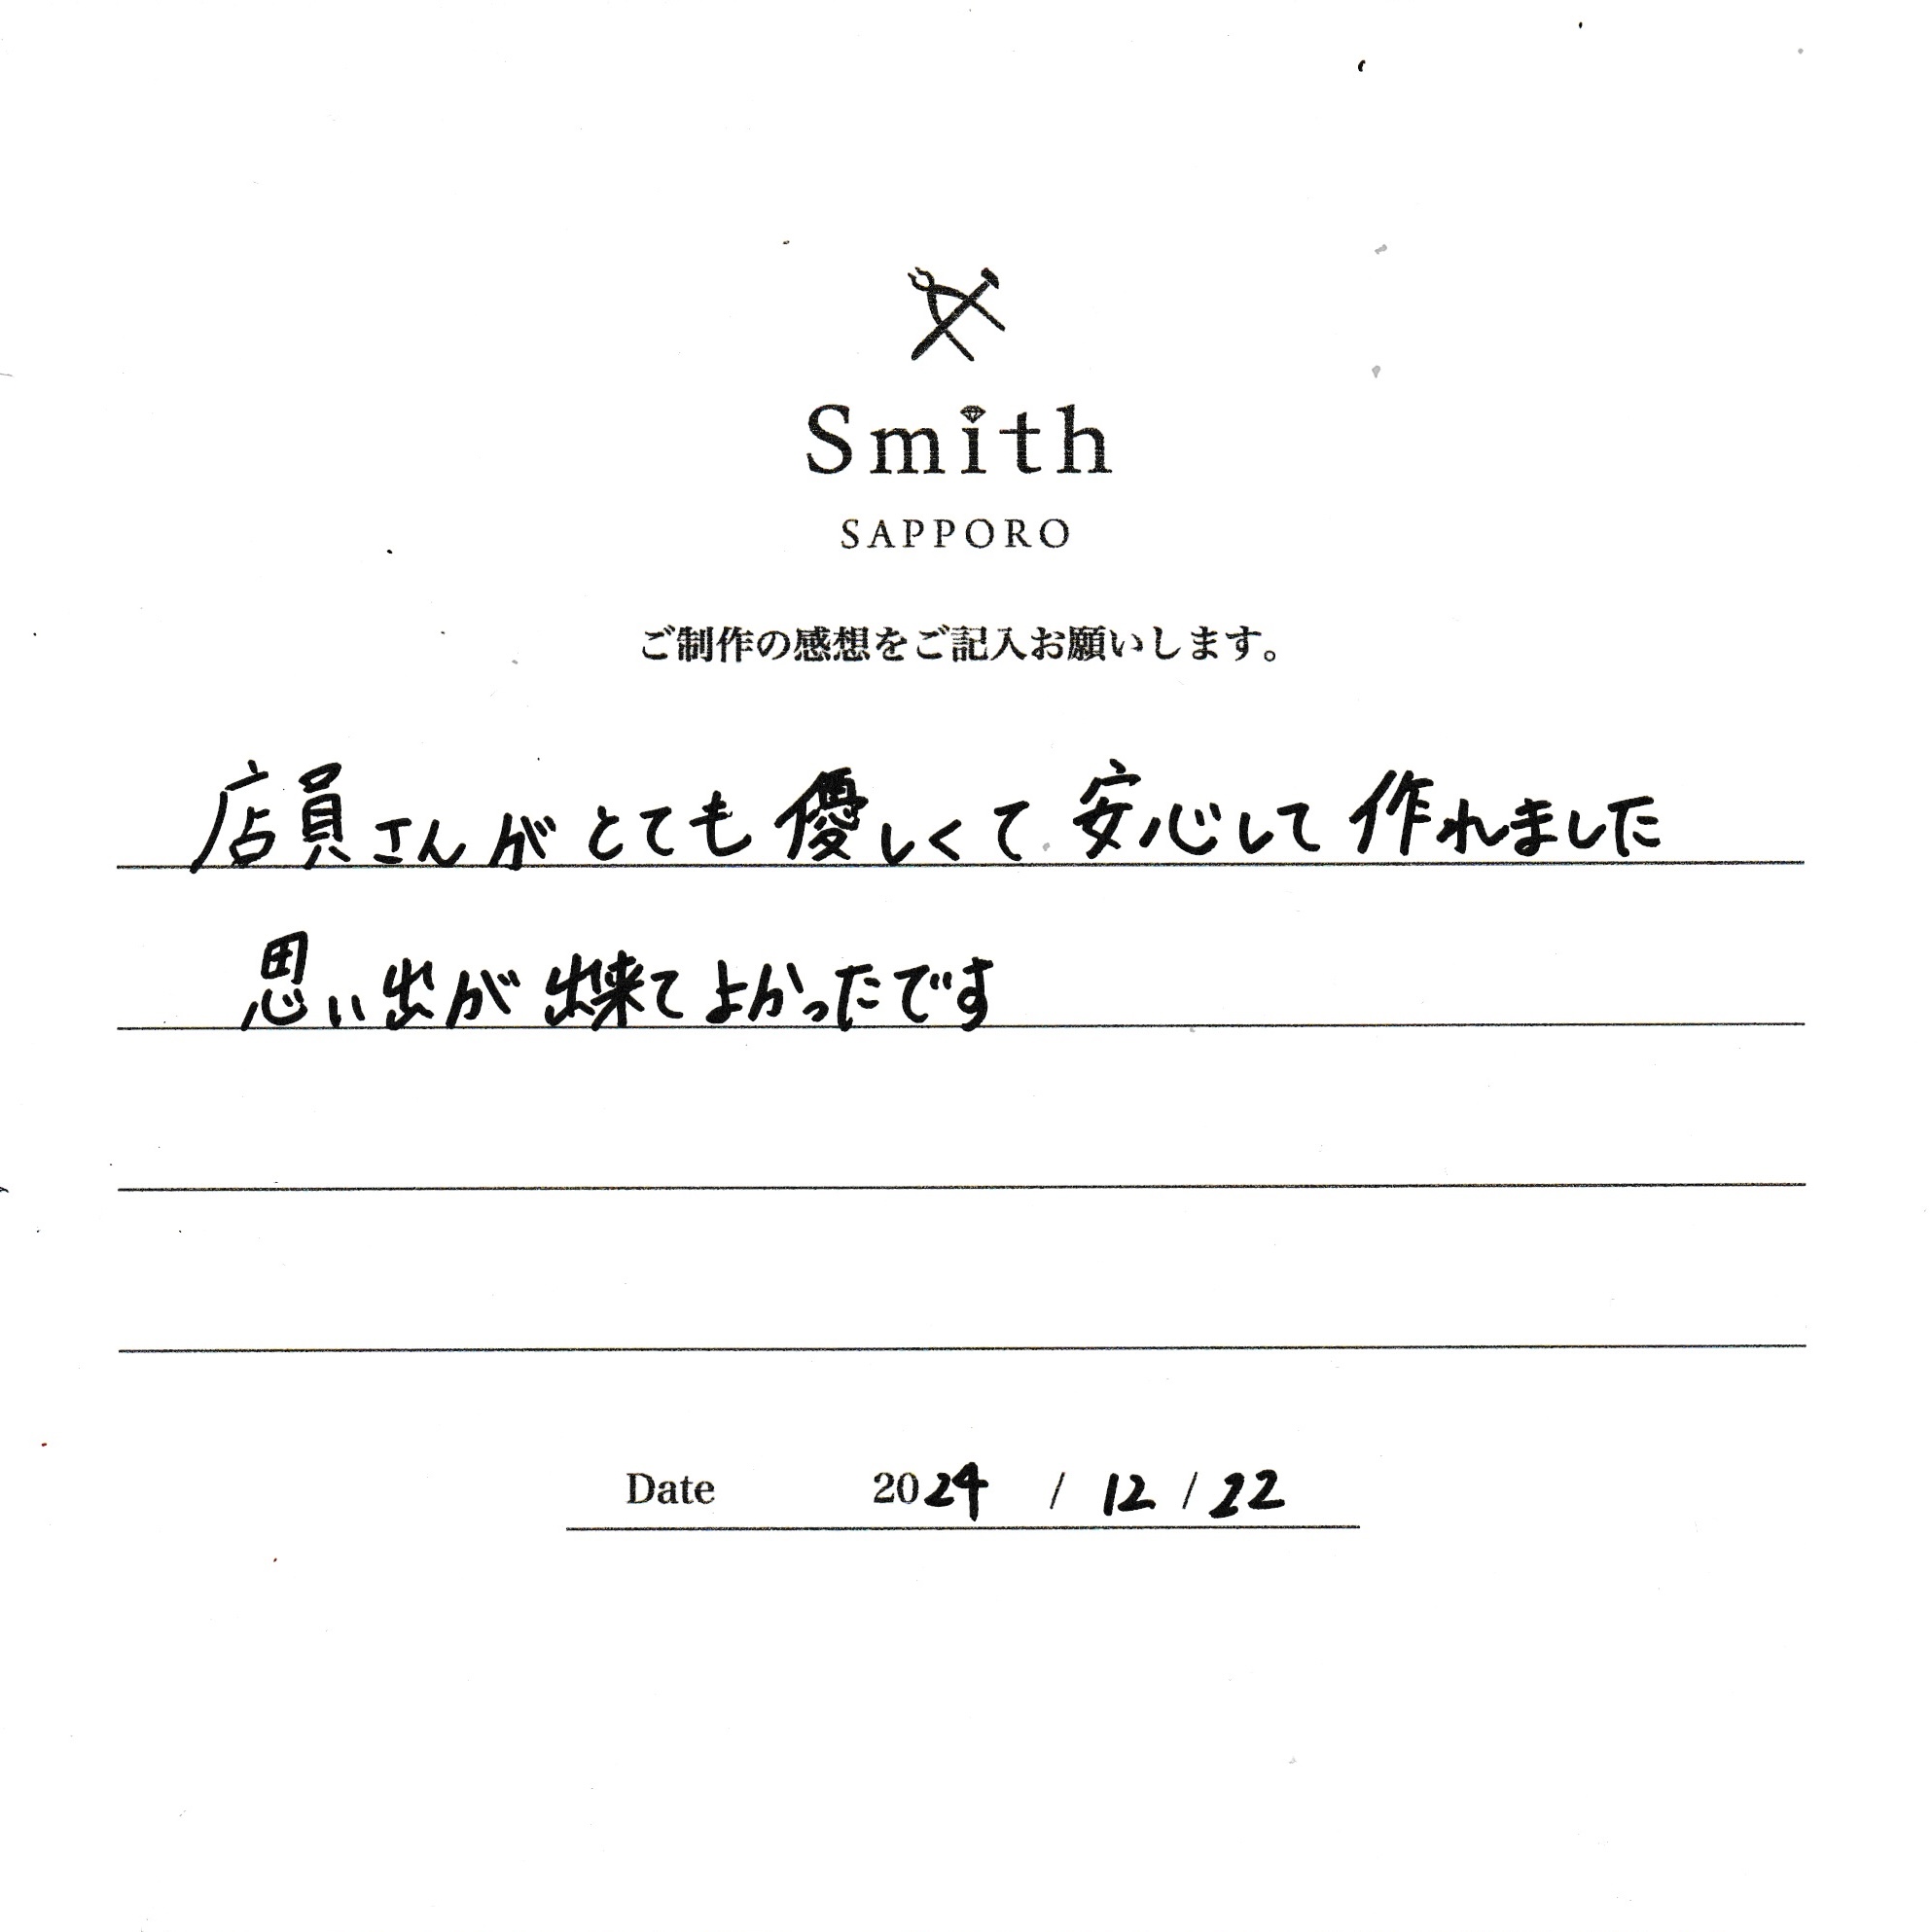 Smith
SAPPORO
ご制作の感想をご記入お願いします。
店員さんがとても優しくて安心して作れました
思い出が出来てよかったです
Date 2024 / 12 / 22